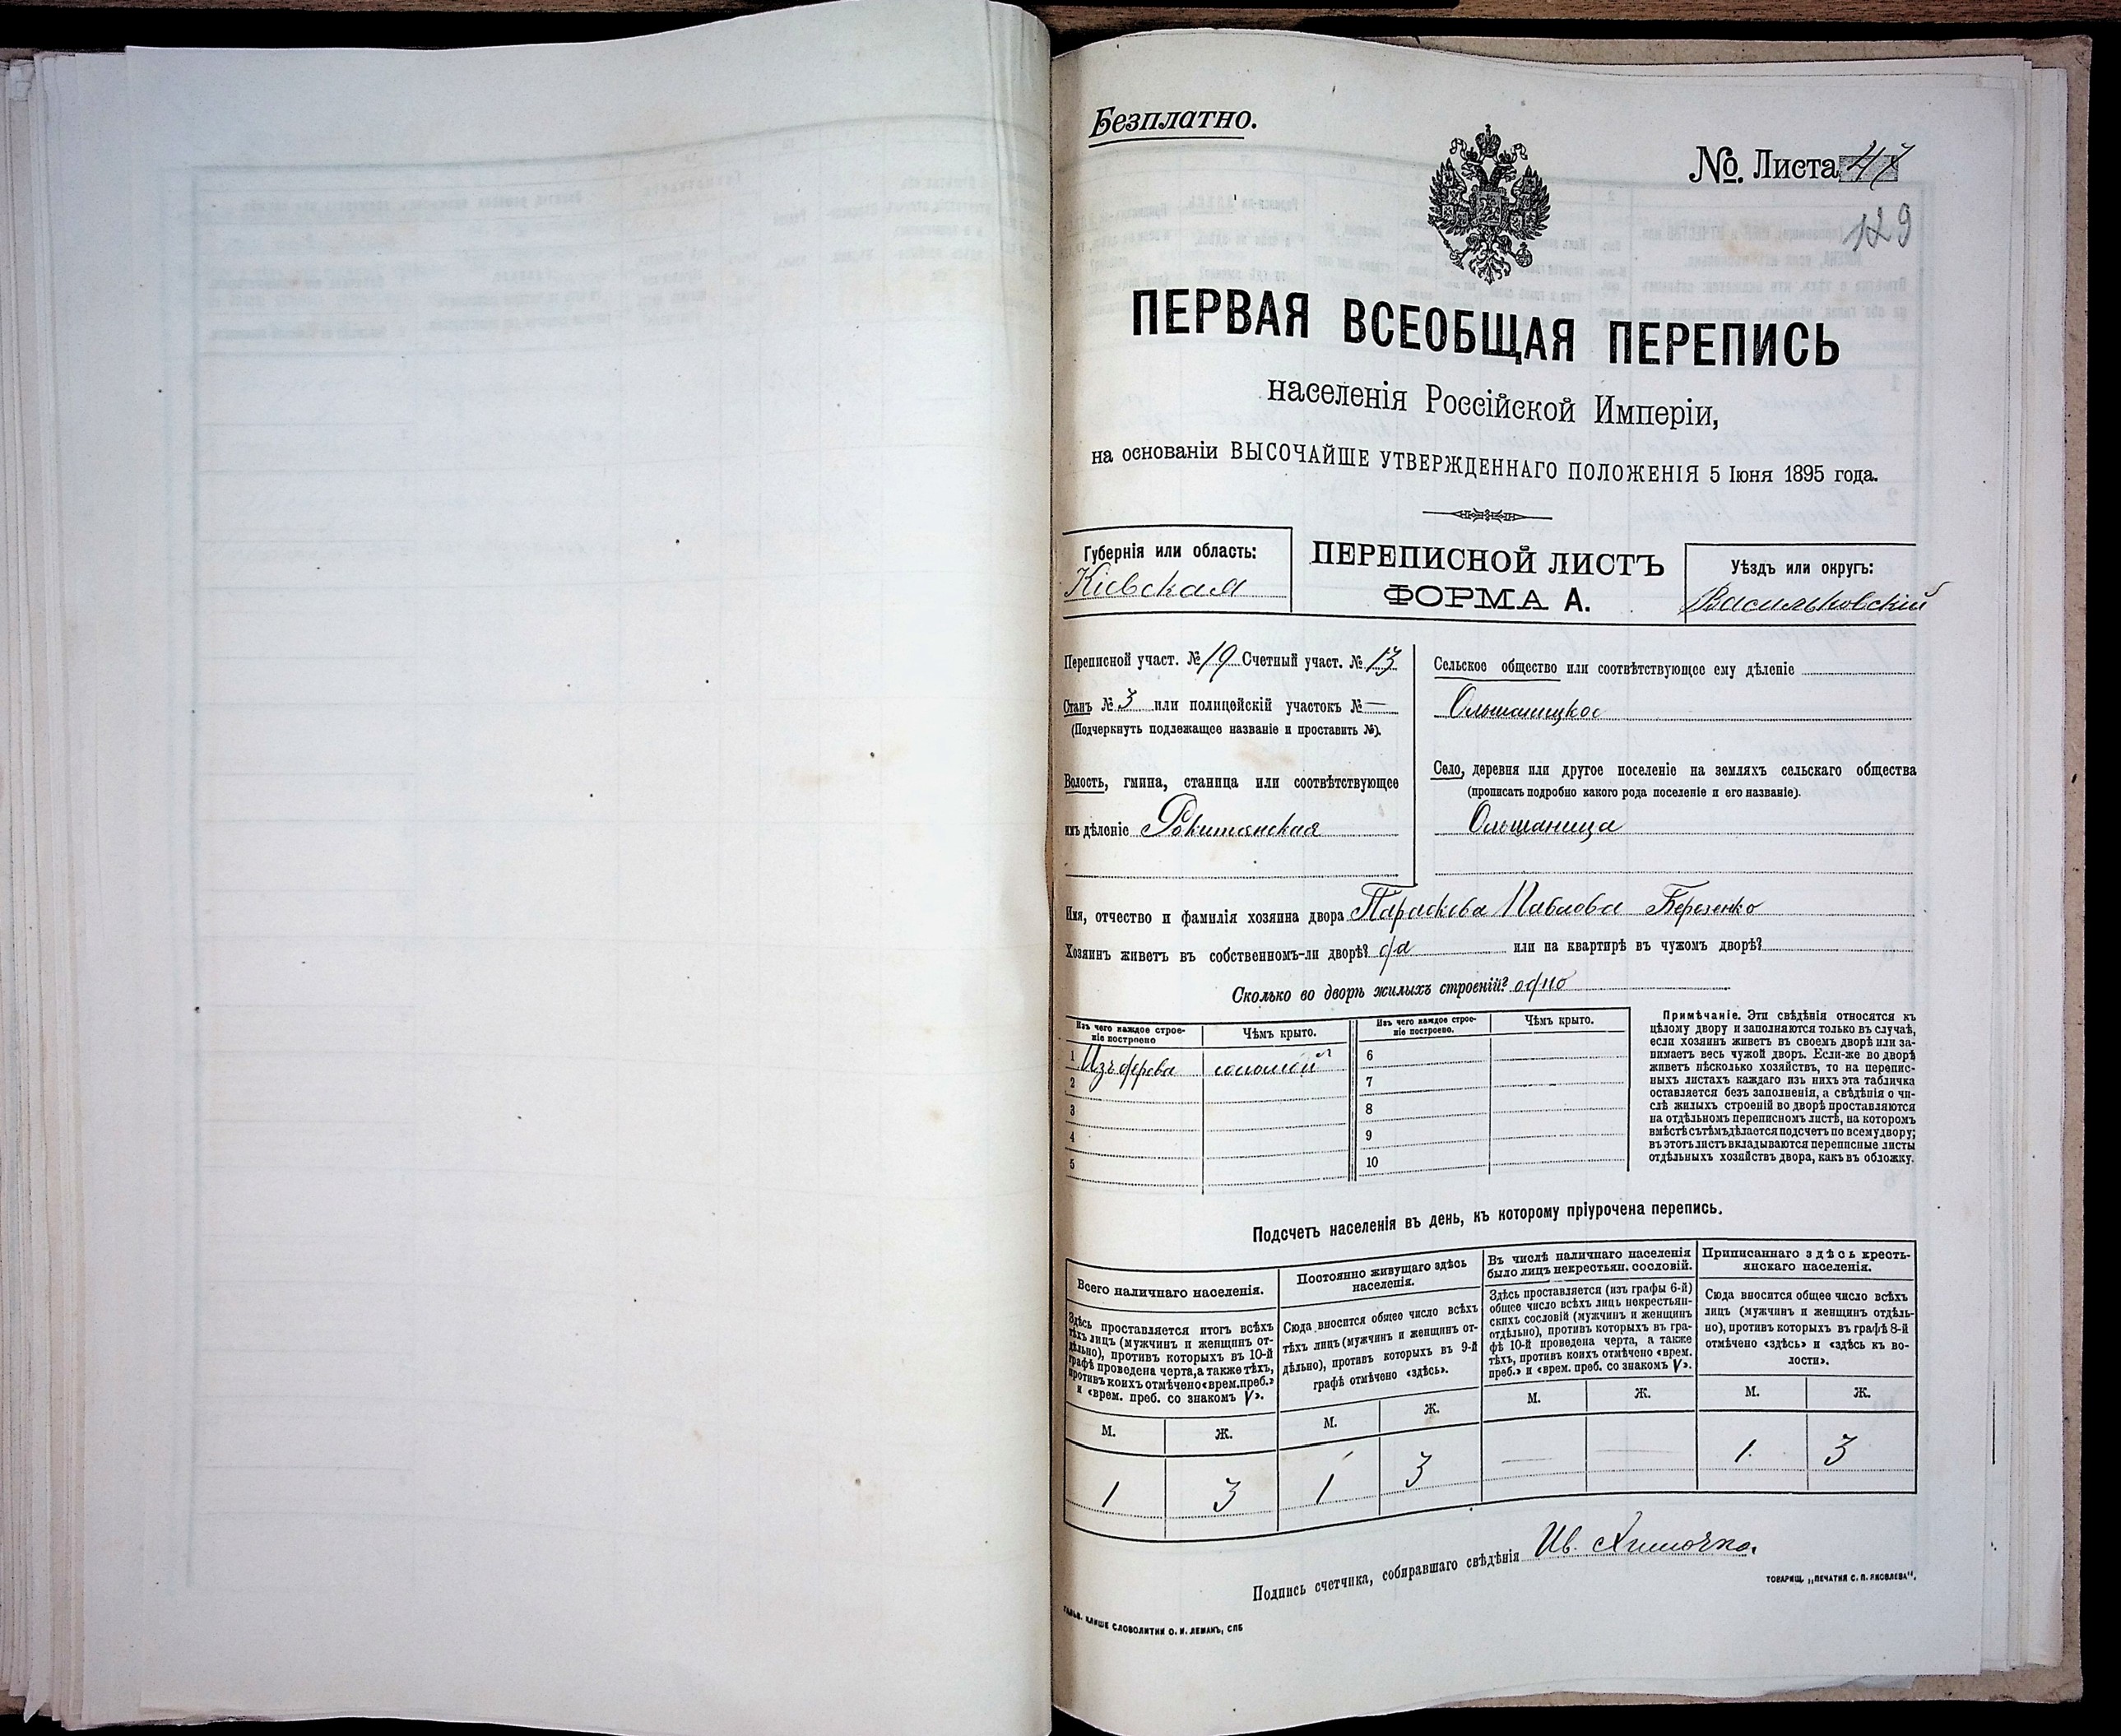 Безплатно.
№. Листа 47
129
ПЕРВАЯ ВСЕОБЩАЯ ПЕРЕПИСЬ
населенія Россійской Имперіи,
на основаніи ВЫСОЧАЙШЕ УТВЕРЖДЕННАГО ПОЛОЖЕНІЯ 5 Іюня 1895 года.
Губернія или область:
Кіевская
ПЕРЕПИСНОЙ ЛИСТЪ
ФОРМА А.
Уѣздъ или округъ:
Васильковскій
Переписной участ. № 19 Счетный участ. № 13
Станъ № 3 или полицейскій участокъ № —
(Подчеркнуть подлежащее названіе и проставить №).
Волость, гмина, станица или соотвѣтствующее
имъ дѣленіе Рокитянская
Сельское общество или соотвѣтствующее ему дѣленіе
Ольшаницкое
Село, деревня или другое поселеніе на земляхъ сельскаго общества
(прописать подробно какого рода поселеніе и его названіе).
Ольшаница
Имя, отчество и фамилія хозяина двора Параскева Павлова Березенко
Хозяинъ живетъ въ собственномъ-ли дворѣ? да или на квартирѣ въ чужомъ дворѣ?
Сколько во дворѣ жилыхъ строеній? одно
Изъ чего каждое строе-
ніе построено
Чѣмъ крыто.
Изъ чего каждое строе-
ніе построено.
Чѣмъ крыто.
1 Изъ дерева соломой 6
2 7
3 8
4 9
5 10
Примѣчаніе. Эти свѣдѣнія относятся къ
цѣлому двору и заполняются только въ случаѣ,
если хозяинъ живетъ въ своемъ дворѣ или за-
нимаетъ весь чужой дворъ. Если-же во дворѣ
живетъ нѣсколько хозяйствъ, то на перепис-
ныхъ листахъ каждаго изъ нихъ эта табличка
оставляется безъ заполненія, а свѣдѣнія о чи-
слѣ жилыхъ строеній во дворѣ проставляются
на отдѣльномъ переписномъ листѣ, на которомъ
вмѣстѣ съ тѣмъ дѣлается подсчетъ по всему двору;
въ этотъ листъ вкладываются переписные листы
отдѣльныхъ хозяйствъ двора, какъ въ обложку.
Подсчетъ населенія въ день, къ которому пріурочена перепись.
Всего наличнаго населенія.
Здѣсь проставляется итогъ всѣхъ
тѣхъ лицъ (мужчинъ и женщинъ от-
дѣльно), противъ которыхъ въ 10-й
графѣ проведена черта, а также тѣхъ,
противъ коихъ отмѣчено «врем. преб.»
и «врем. преб. со знакомъ V».
Постоянно живущаго здѣсь
населенія.
Сюда вносится общее число всѣхъ
тѣхъ лицъ (мужчинъ и женщинъ от-
дѣльно), противъ которыхъ въ 9-й
графѣ отмѣчено «здѣсь».
Въ числѣ наличнаго населенія
было лицъ некрестьян. сословій.
Здѣсь проставляется (изъ графы 6-й)
общее число всѣхъ лицъ некрестьян-
скихъ сословій (мужчинъ и женщинъ
отдѣльно), противъ которыхъ въ гра-
фѣ 10-й проведена черта, а также
тѣхъ, противъ коихъ отмѣчено «врем.
преб.» и «врем. преб. со знакомъ V».
Приписаннаго здѣсь кресть-
янскаго населенія.
Сюда вносится общее число всѣхъ
лицъ (мужчинъ и женщинъ отдѣль-
но), противъ которыхъ въ графѣ 8-й
отмѣчено «здѣсь» и «здѣсь къ во-
лости».
М. Ж. М. Ж. М. Ж. М. Ж.
1 3 1 3 — — 1 3
Подпись счетчика, собиравшаго свѣдѣнія Ив.
ТОВАРИЩ. „ПЕЧАТНЯ С. П. ЯКОВЛЕВА".
ГАЛЬВ. КЛИШЕ СЛОВОЛИТНИ О. И. ЛЕМАНЪ, СПБ